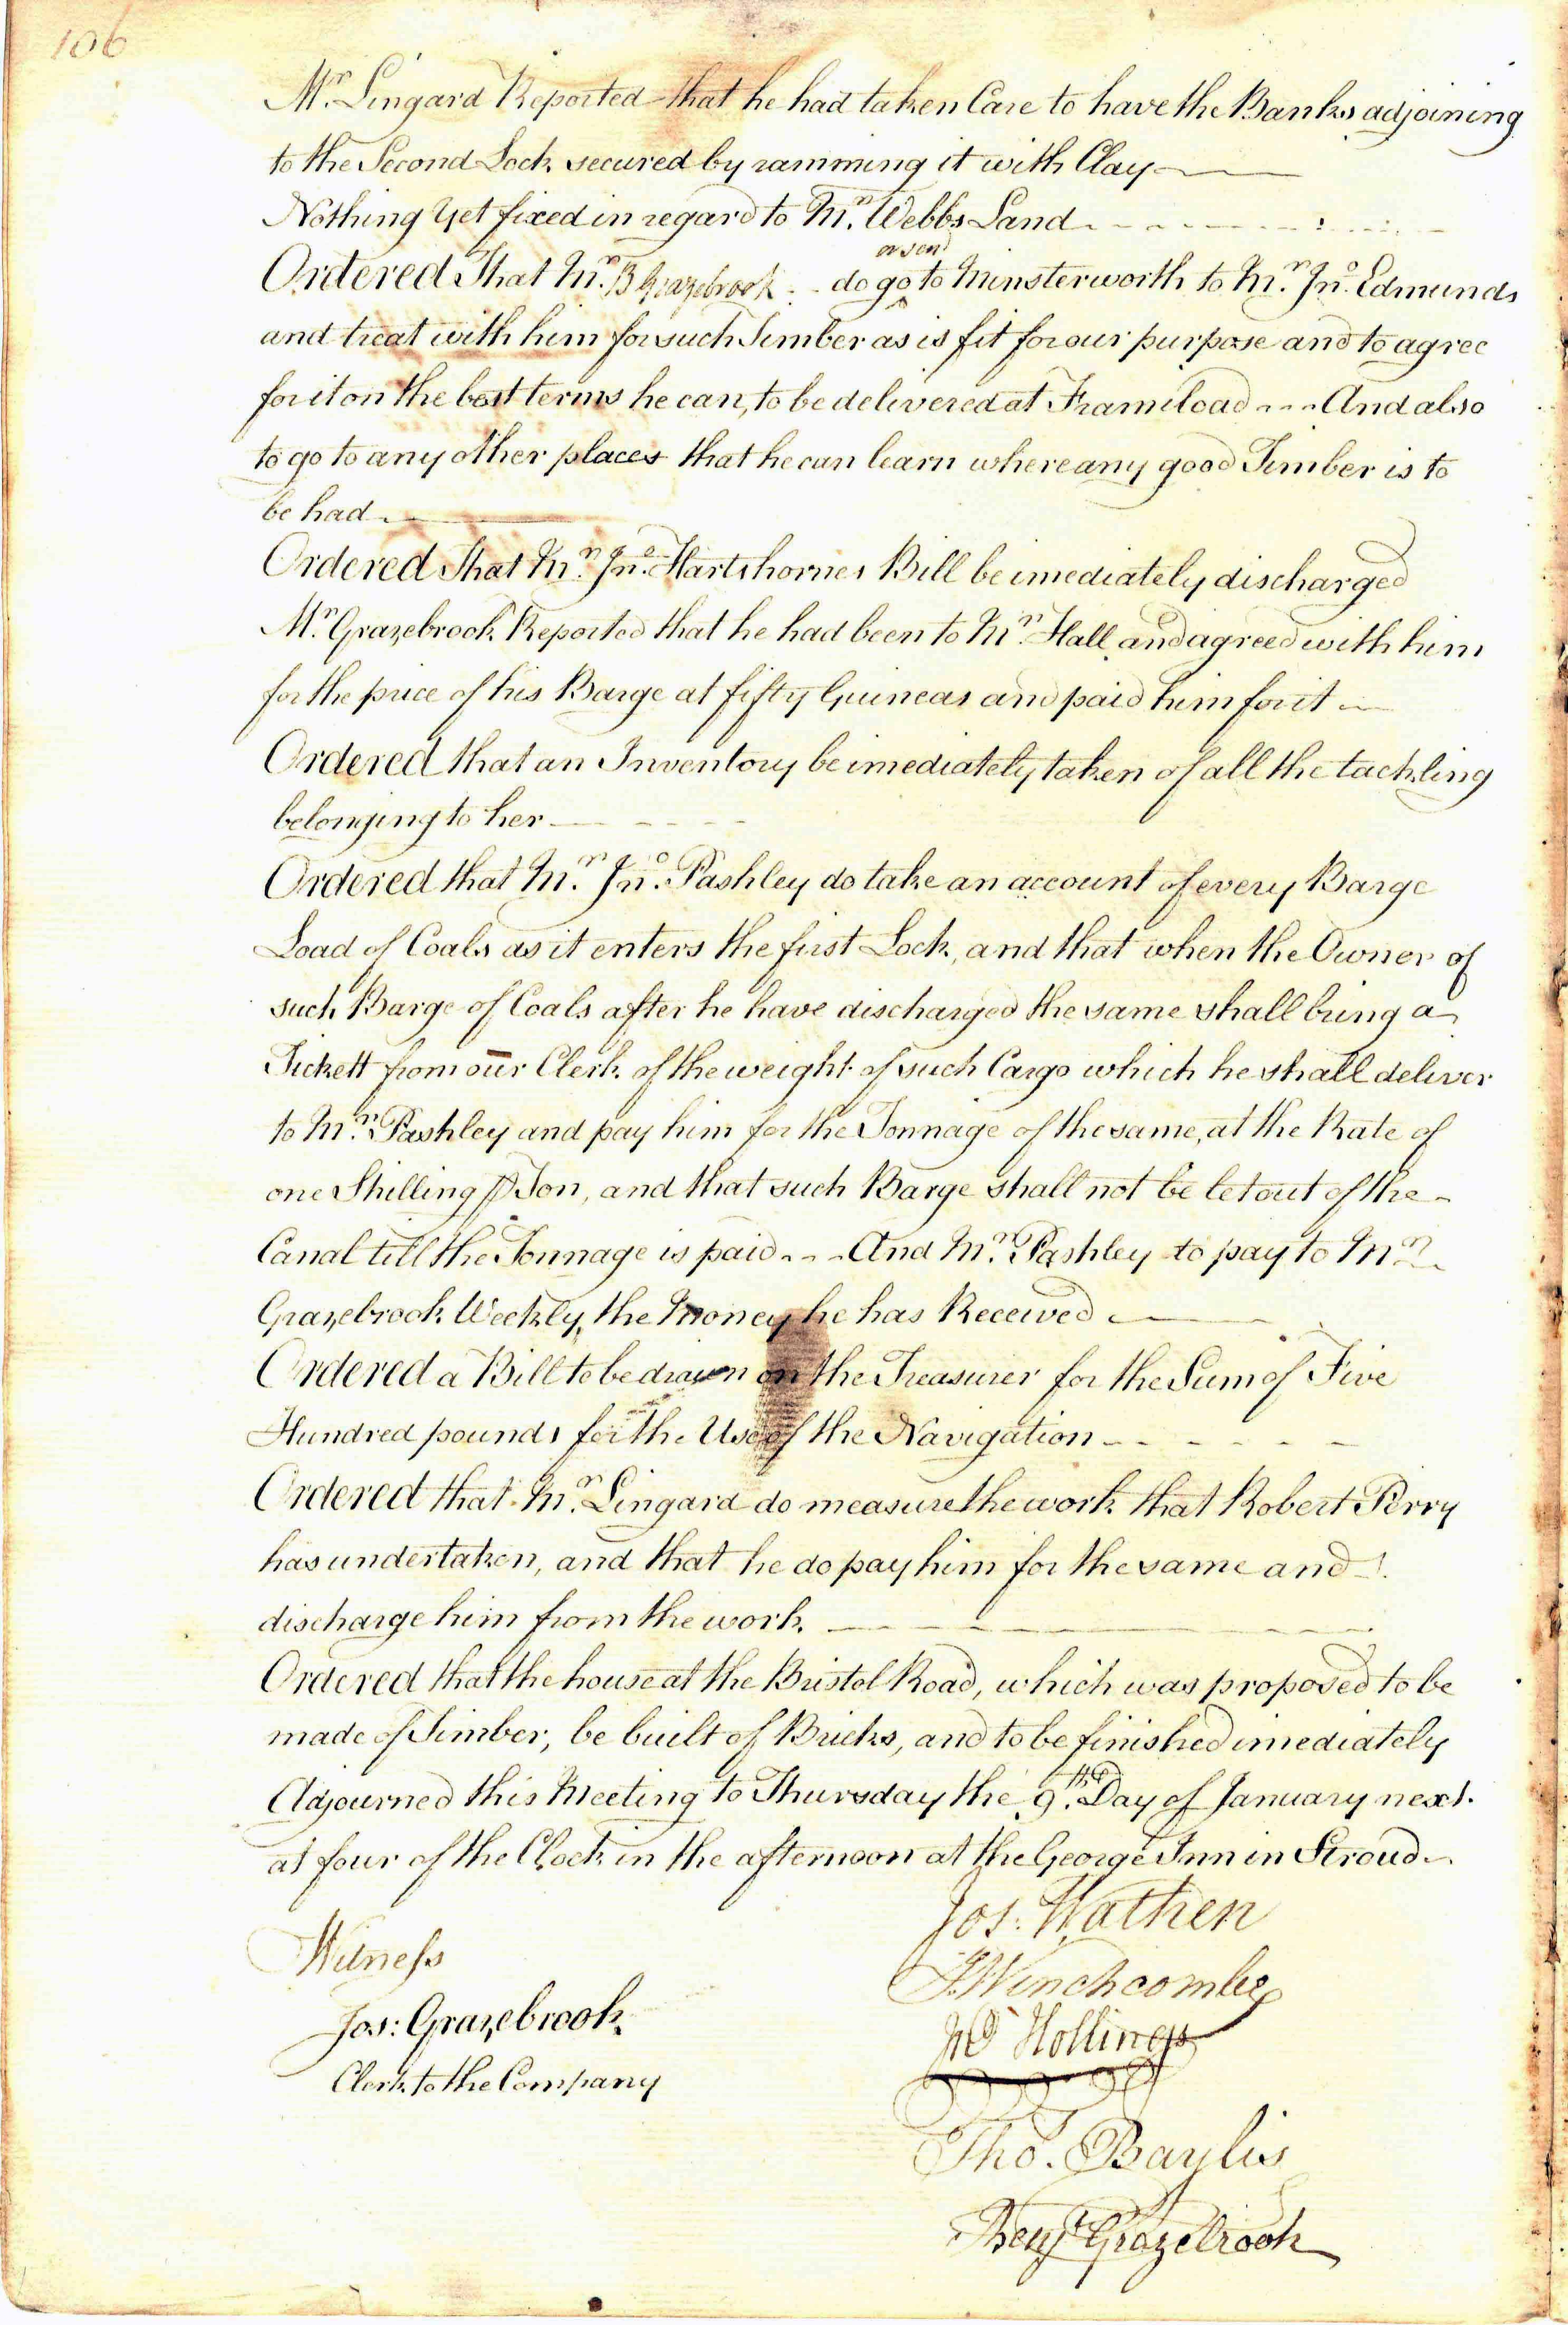 106
Mr. Lingard Reported that he had taken Care to have the Banks adjoining
to the Second Lock secured by ramming it with Clay
Nothing Yet fixed in regard to Mr. Webbs Land
or send
Ordered That Mr. B Grazebrook do go to Minsterworth to Mr. Jno. Edmunds
and treat with him for such Timber as is fit for our purpose and to agree
for it on the best terms he can, to be delivered at Framiload --- And also
to go to any other places that he can learn where any good Timber is to
be had
Ordered That Mr. Jno. Hartshornes Bill be imediately discharged
Mr. Grazebrook Reported that he had been to Mr. Hall and agreed with him
for the price of his Barge at fifty Guineas and paid him for it
Ordered that an Inventory be imediately taken of all the tackling
belonging to her
Ordered that Mr. Jno. Pashley do take an account of every Barge
Load of Coals as it enters the first Lock, and that when the Owner of
such Barge of Coals after he have discharged the same shall bring a
Tickett from our Clerk of the weight of such Cargo which he shall deliver
to Mr. Pashley and pay him for the Tonnage of the same, at the Rate of
one Shilling ⅌ Ton, and that such Barge shall not be let out of the
Canal till the Tonnage is paid --- And Mr. Pashley to pay to Mr.
Grazebrook Weekly, the Money he has Received
Ordered a Bill to be drawn on the Treasurer for the Sum of Five
Hundred pounds for the Use of the Navigation
Ordered that Mr. Lingard do measure the work that Robert Perry
has undertaken, and that he do pay him for the same and
discharge him from the work.
Ordered that the house at the Bristol Road, which was proposed to be
made of Timber, be built of Bricks, and to be finished imediately
Adjourned this Meeting to Thursday the 9th. Day of January next.
at four of the Clock in the afternoon at the George Inn in Stroud
Jos. Wathen
Witness
J. Winchcombe
Jos: Grazebrook
Jno Hollings
Clerk to the Company
Tho. Baylis
Benj Grazebrook